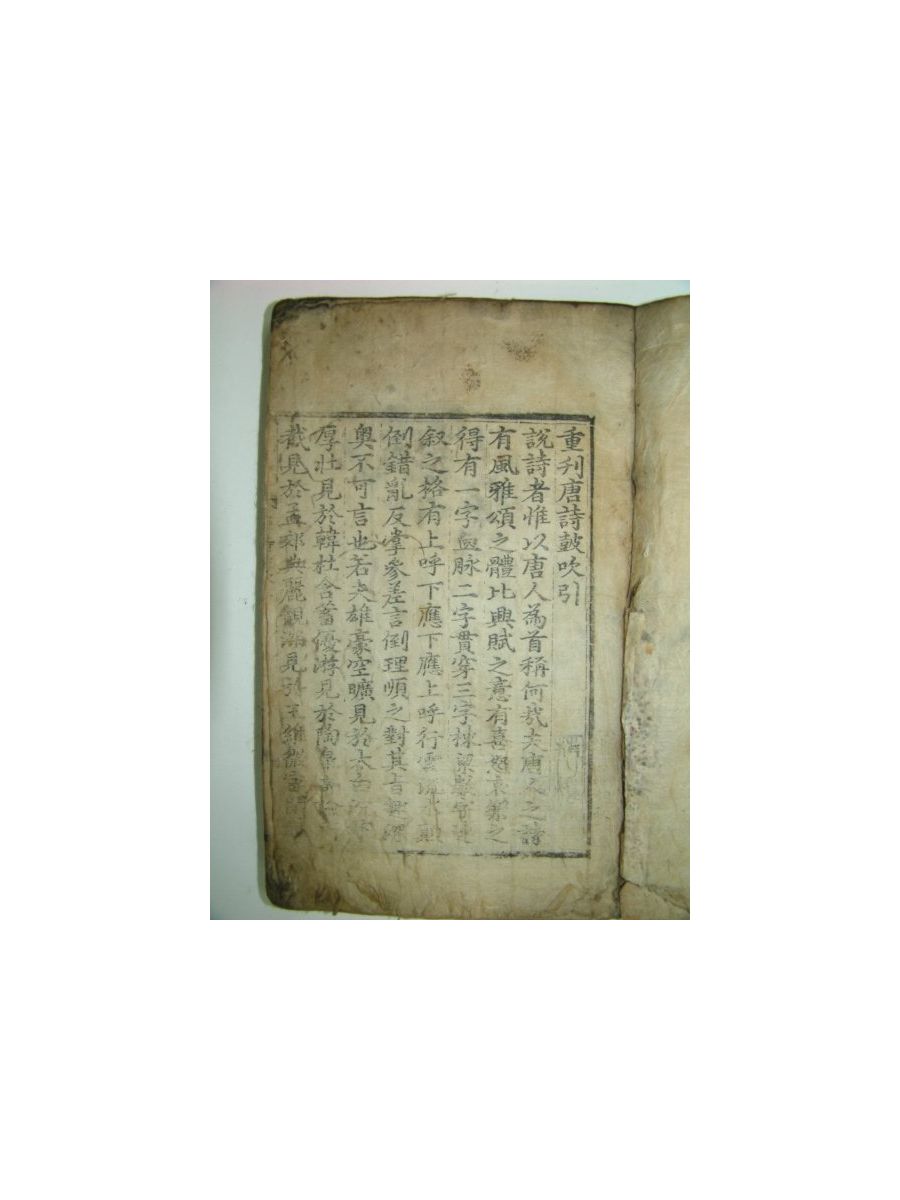 重刋唐詩鼓吹引
說詩者惟以唐人為首稱何㢤夫唐人之詩
有風雅頌之體比興賦之意有喜怒哀樂之
得有一字血脉二字貫穿三字棟梁數字連
叙之格有上呼下應下應上呼行雲流水顛
倒錯亂反掌參差言倒理順之對其言
奧不可言也若夫雄豪空曠見於太白
厚壯見於韓杜含蓄優游見於陶韋
截見於孟郊典麗靚深見於王維